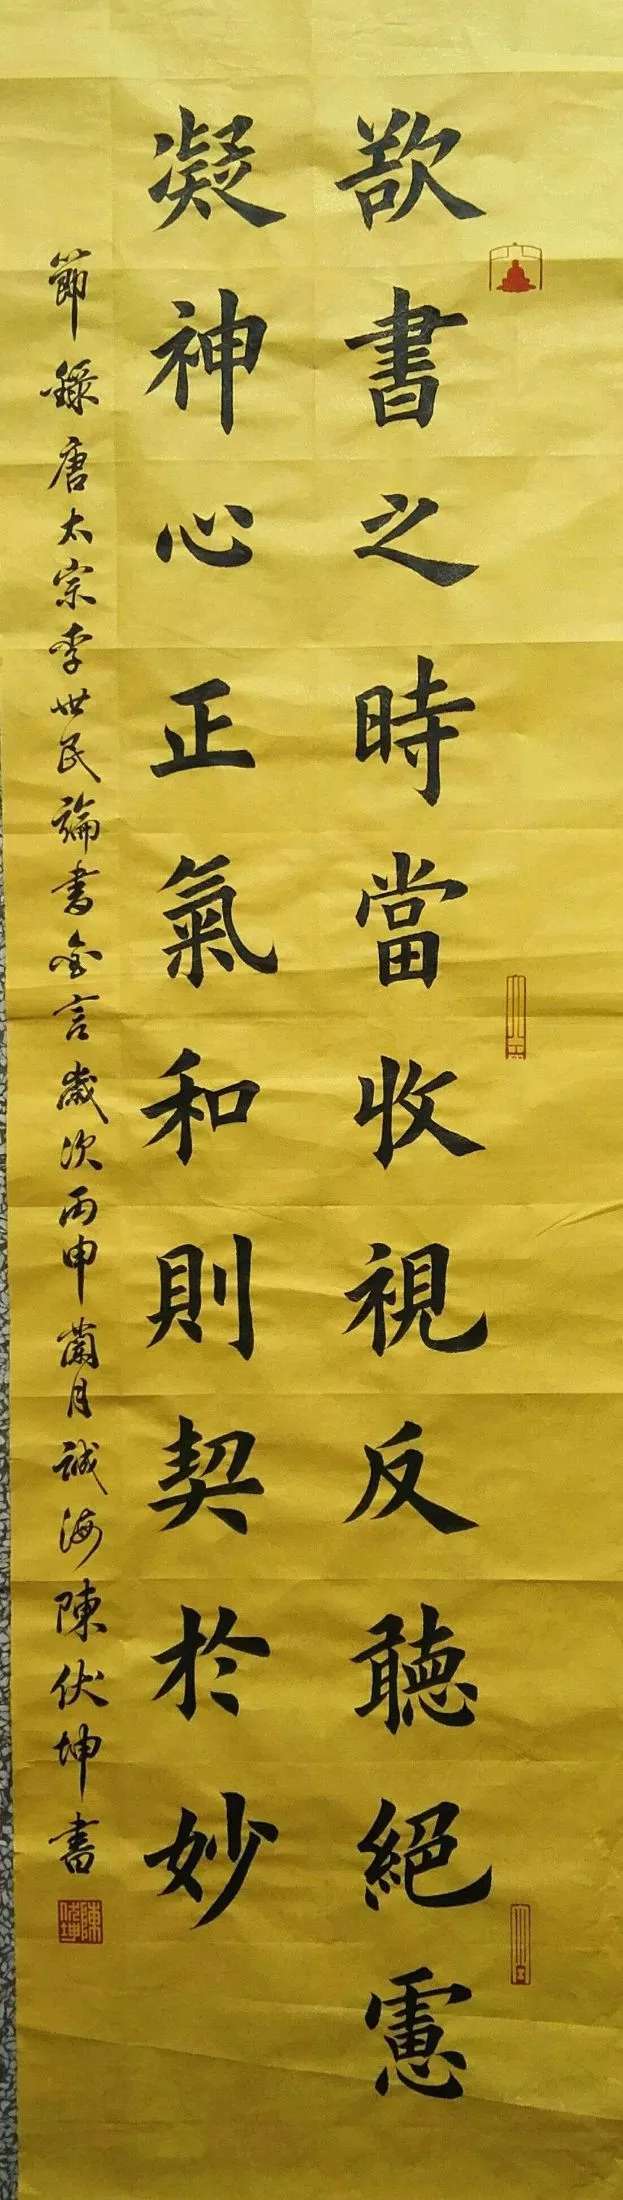 欲書之時當收視反聽絕慮
凝神心正氣和則契於妙
節錄唐太宗李世民論書金言歲次丙申蘭月誠海陳伏坤書